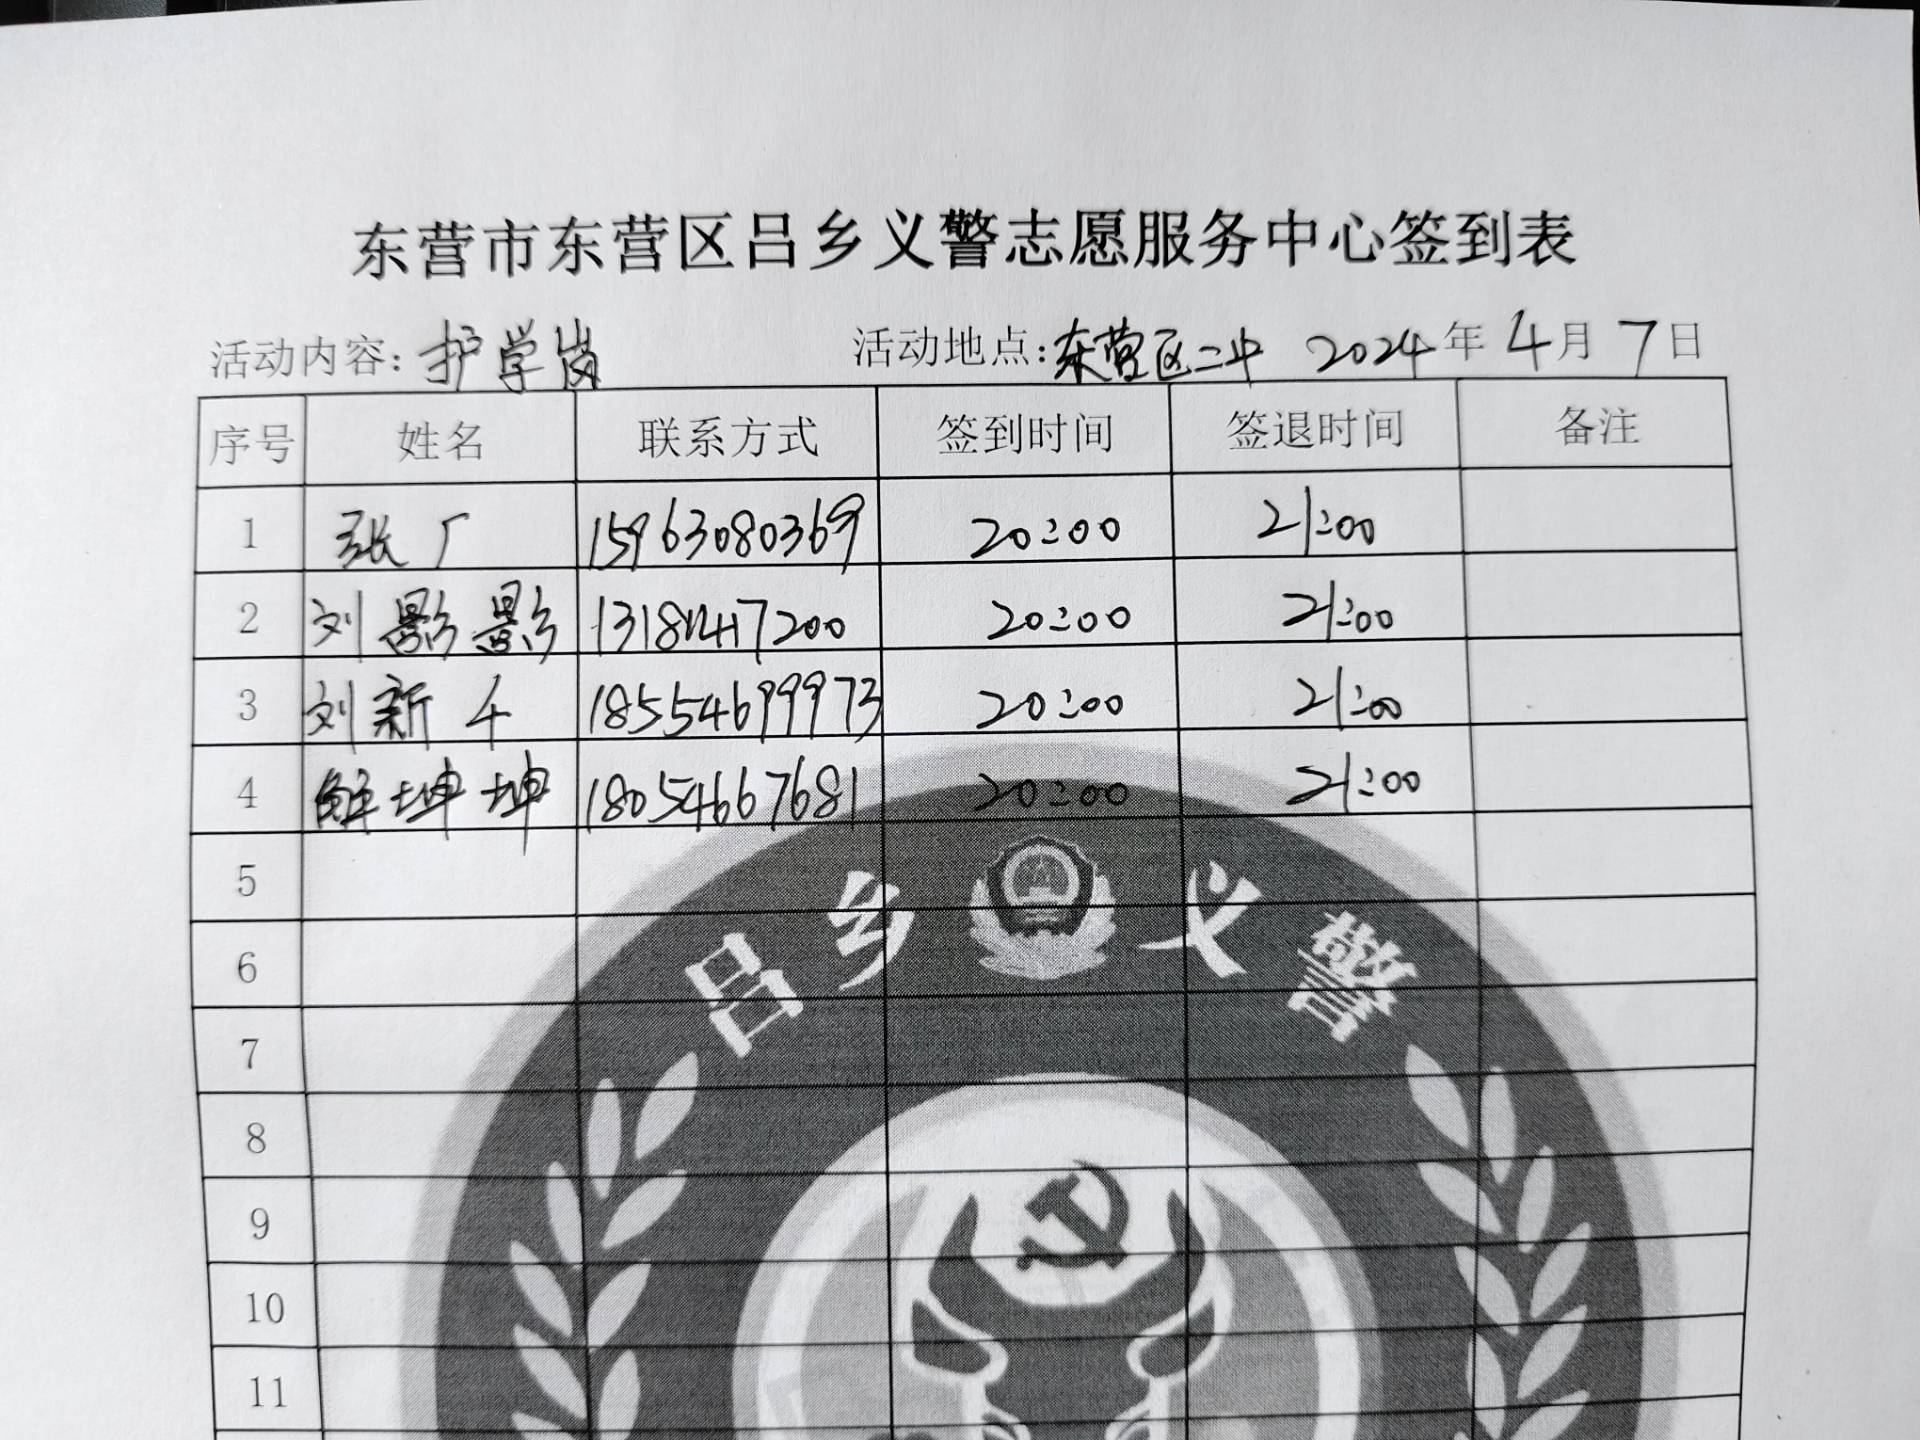 东营市东营区吕乡义警志愿服务中心签到表
活动内容：护学岗 活动地点：东营区二中 2024年4月7日
序号 姓名 联系方式 签到时间 签退时间 备注
1 张广 15963080369 20:00 21:00
2 刘影影 20:00 21:00
3 刘新 18554699973 20:00 21:00
4 解坤坤 18054667681 20:00 21:00
5
吕乡义警
6
7
8
9
10
11